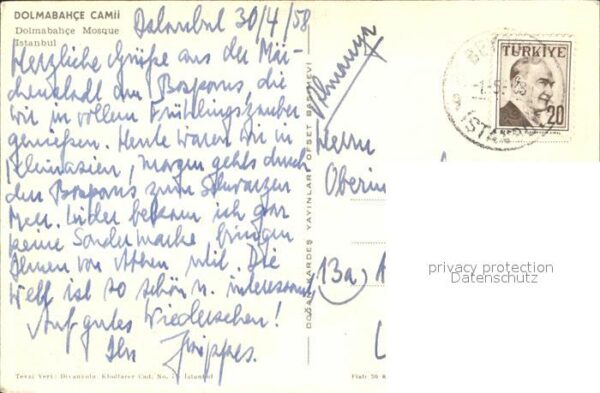 DOLMABAHÇE CAMİİ
Dolmabahçe Mosque
Istanbul
Istanbul 30/4/58
Herzliche Grüße aus der Mär-
chenstadt am Bosporus, die
wir in vollem Frühlingszauber
genießen. Heute waren wir in
Kleinasien, morgen gehts durch
den Bosporus zum Schwarzen
Meer. Leider bekam ich gar
keine Sondermarke, bringe
Ihnen von Athen mit. Die
Welt ist so schön u. interessant.
Auf gutes Wiedersehen!
Ihr
Almanya
Herrn
Oberin
13a)
TÜRKİYE
20
İSTANBUL
DOĞAN KARDEŞ YAYINLARI OFSET BASIMEVİ
privacy protection
Datenschutz
Tevzi Yeri: Divanyolu, Klodfarer Cad. No. İstanbul